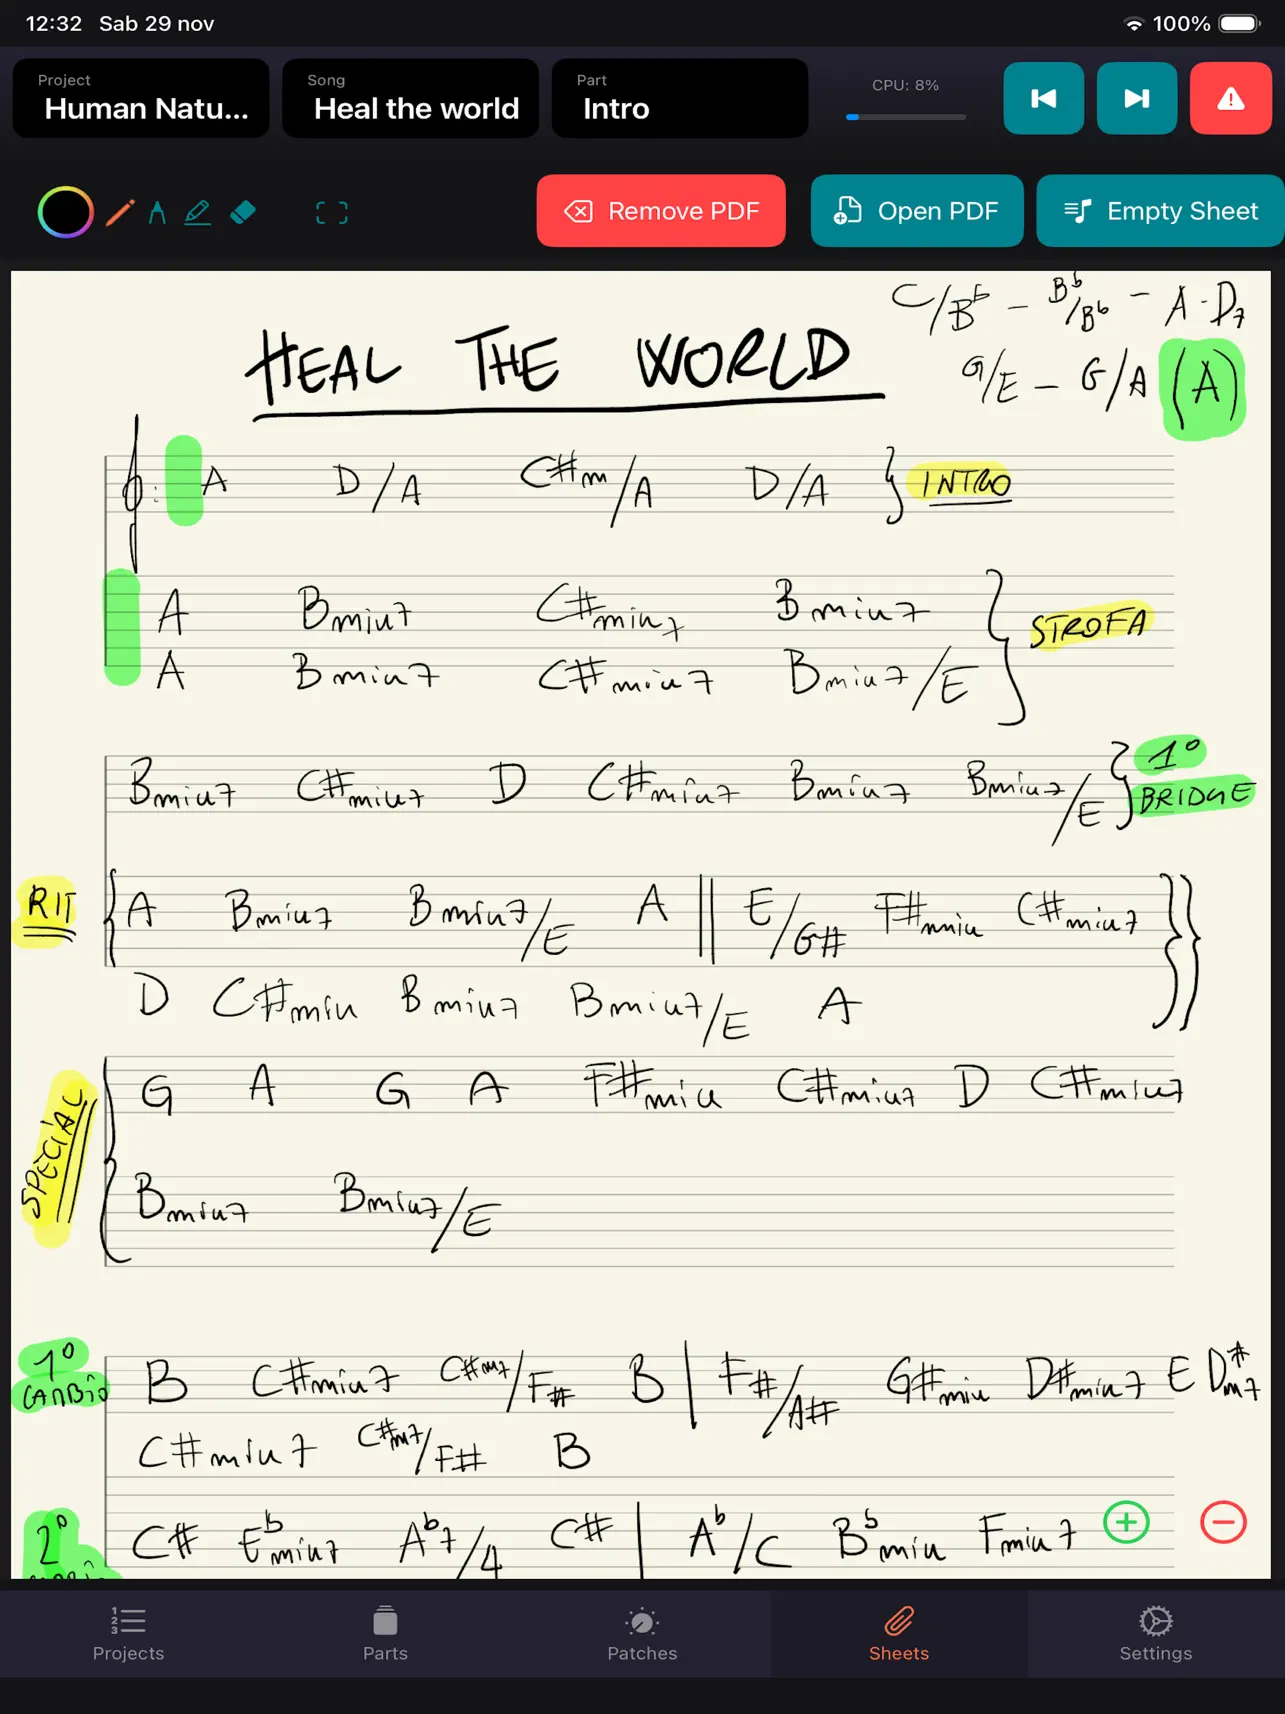 12:32 Sab 29 nov 100%
Project Song Part CPU: 8%
Human Natu... Heal the world Intro
Remove PDF Open PDF Empty Sheet
C/Bb - Bb/Bb - A · D7
HEAL THE WORLD
G/E - G/A (A)
A D/A C#m/A D/A } INTRO
A Bmin7 C#min7 Bmin7
STROFA
A Bmin7 C#min7 Bmin7/E
Bmin7 C#min7 D C#min7 Bmin7 Bmin7/E } 1° BRIDGE
RIT { A Bmin7 Bmin7/E A || E/G# F#min C#min7
D C#min Bmin7 Bmin7/E A
SPECIAL
G A G A F#min C#min7 D C#min7
Bmin7 Bmin7/E
1° CAMBIO
B C#min7 C#m7/F# B | F#/A# G#min D#min7 E D#m7
C#min7 C#m7/F# B
2° C# Ebmin7 Ab7/4 C# | Ab/C Bbmin Fmin7
Projects Parts Patches Sheets Settings